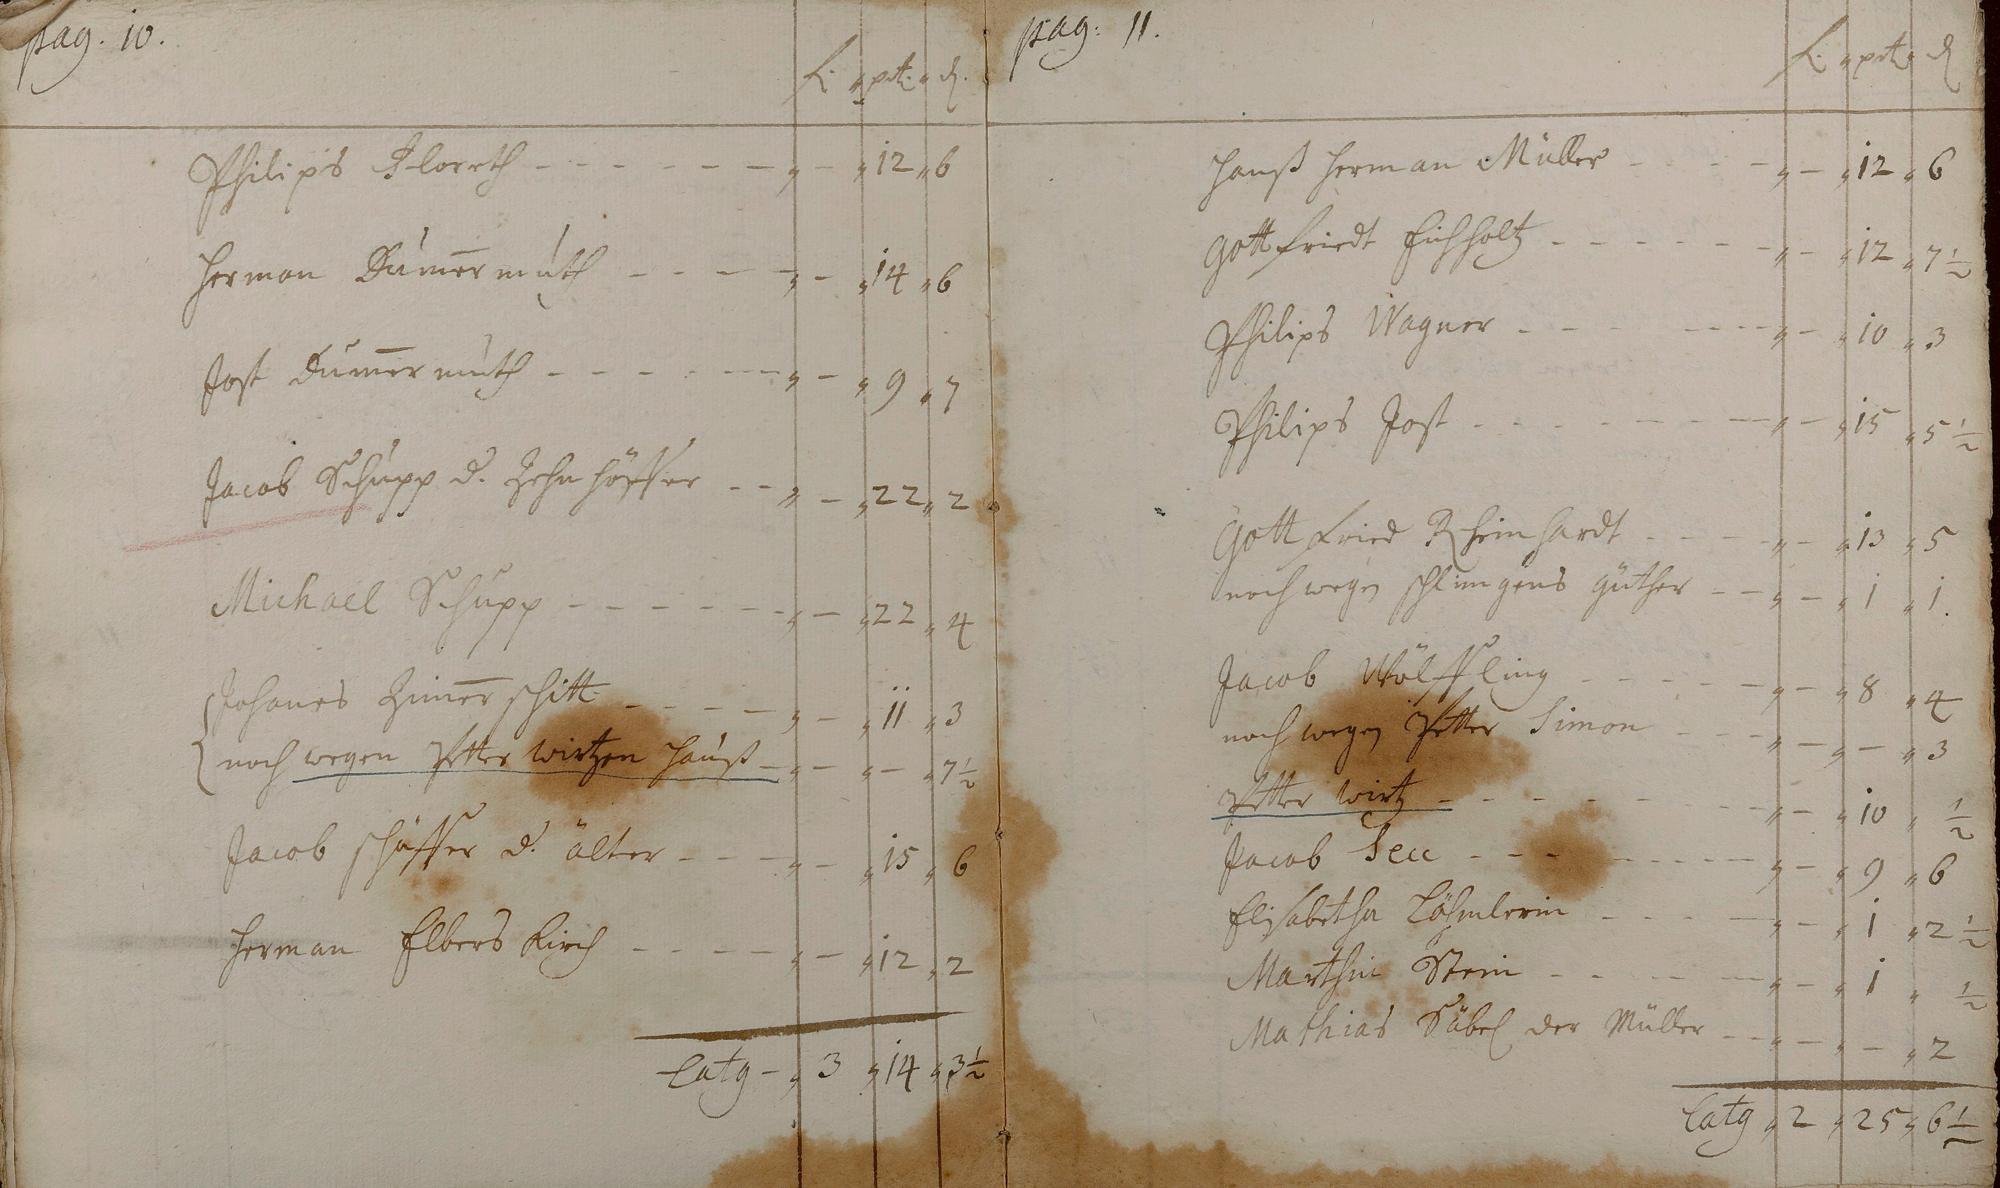 pag. 10.
fl. " ptz: " ₰.
Philips Floreth - - - - - - " - " 12 " 6
Herman Dūmer̄mūth - - - - " - " 14 " 6
Jost Dūmer̄mūth - - - - - - " - " 9 " 7
Jacob Schūpp d. Zehnhöffer - - " - " 22 " 2
Michael Schūpp - - - - - - " - " 22 " 4
Johanes Zimer̄schitt - - - - - " - " 11 " 3
noch wegen Petter Wirtzen Hauß - " - " - " 7½
Jacob Schäffer d. älter - - - - " - " 15 " 6
Herman Elbers Kirch - - - - - " - " 12 " 2
Latg - " 3 " 14 " 3½
pag: 11.
fl. " ptz " ₰
Hanß Herman Müller - - - - - " - " 12 " 6
Gottfriedt Eichholtz - - - - - - " - " 12 " 7½
Philips Wagner - - - - - - - " - " 10 " 3
Philips Jost - - - - - - - - " - " 15 " 5½
Gottfried Rheinhardt - - - - - " - " 13 " 5
noch wegen Schlimgens Güther - - " - " 1 " 1.
Jacob Wölffling - - - - - - " - " 8 " 4
noch wegen Petter Simon - - - - " - " - " 3
Petter Wirtz - - - - - - - - " - " 10 " ½
Jacob Secc - - - - - - - - " - " 9 " 6
Elisabetha Löhmlerin - - - - - " - " 1 " 2½
Marthin Stein - - - - - - - " - " 1 " ½
Mathias Säbel der Müller - - " - " - " 2
Latg " 2 " 25 " 6½